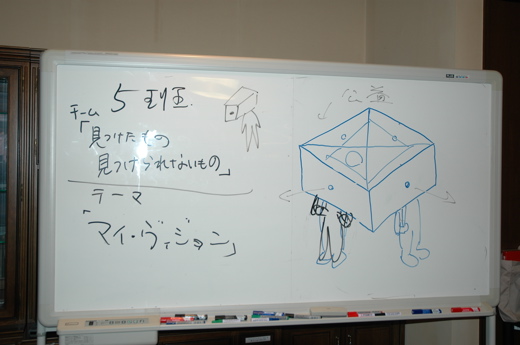 5班
チーム
「見つけたもの
見つけられないもの」
テーマ
「マイ・ヴィジョン」